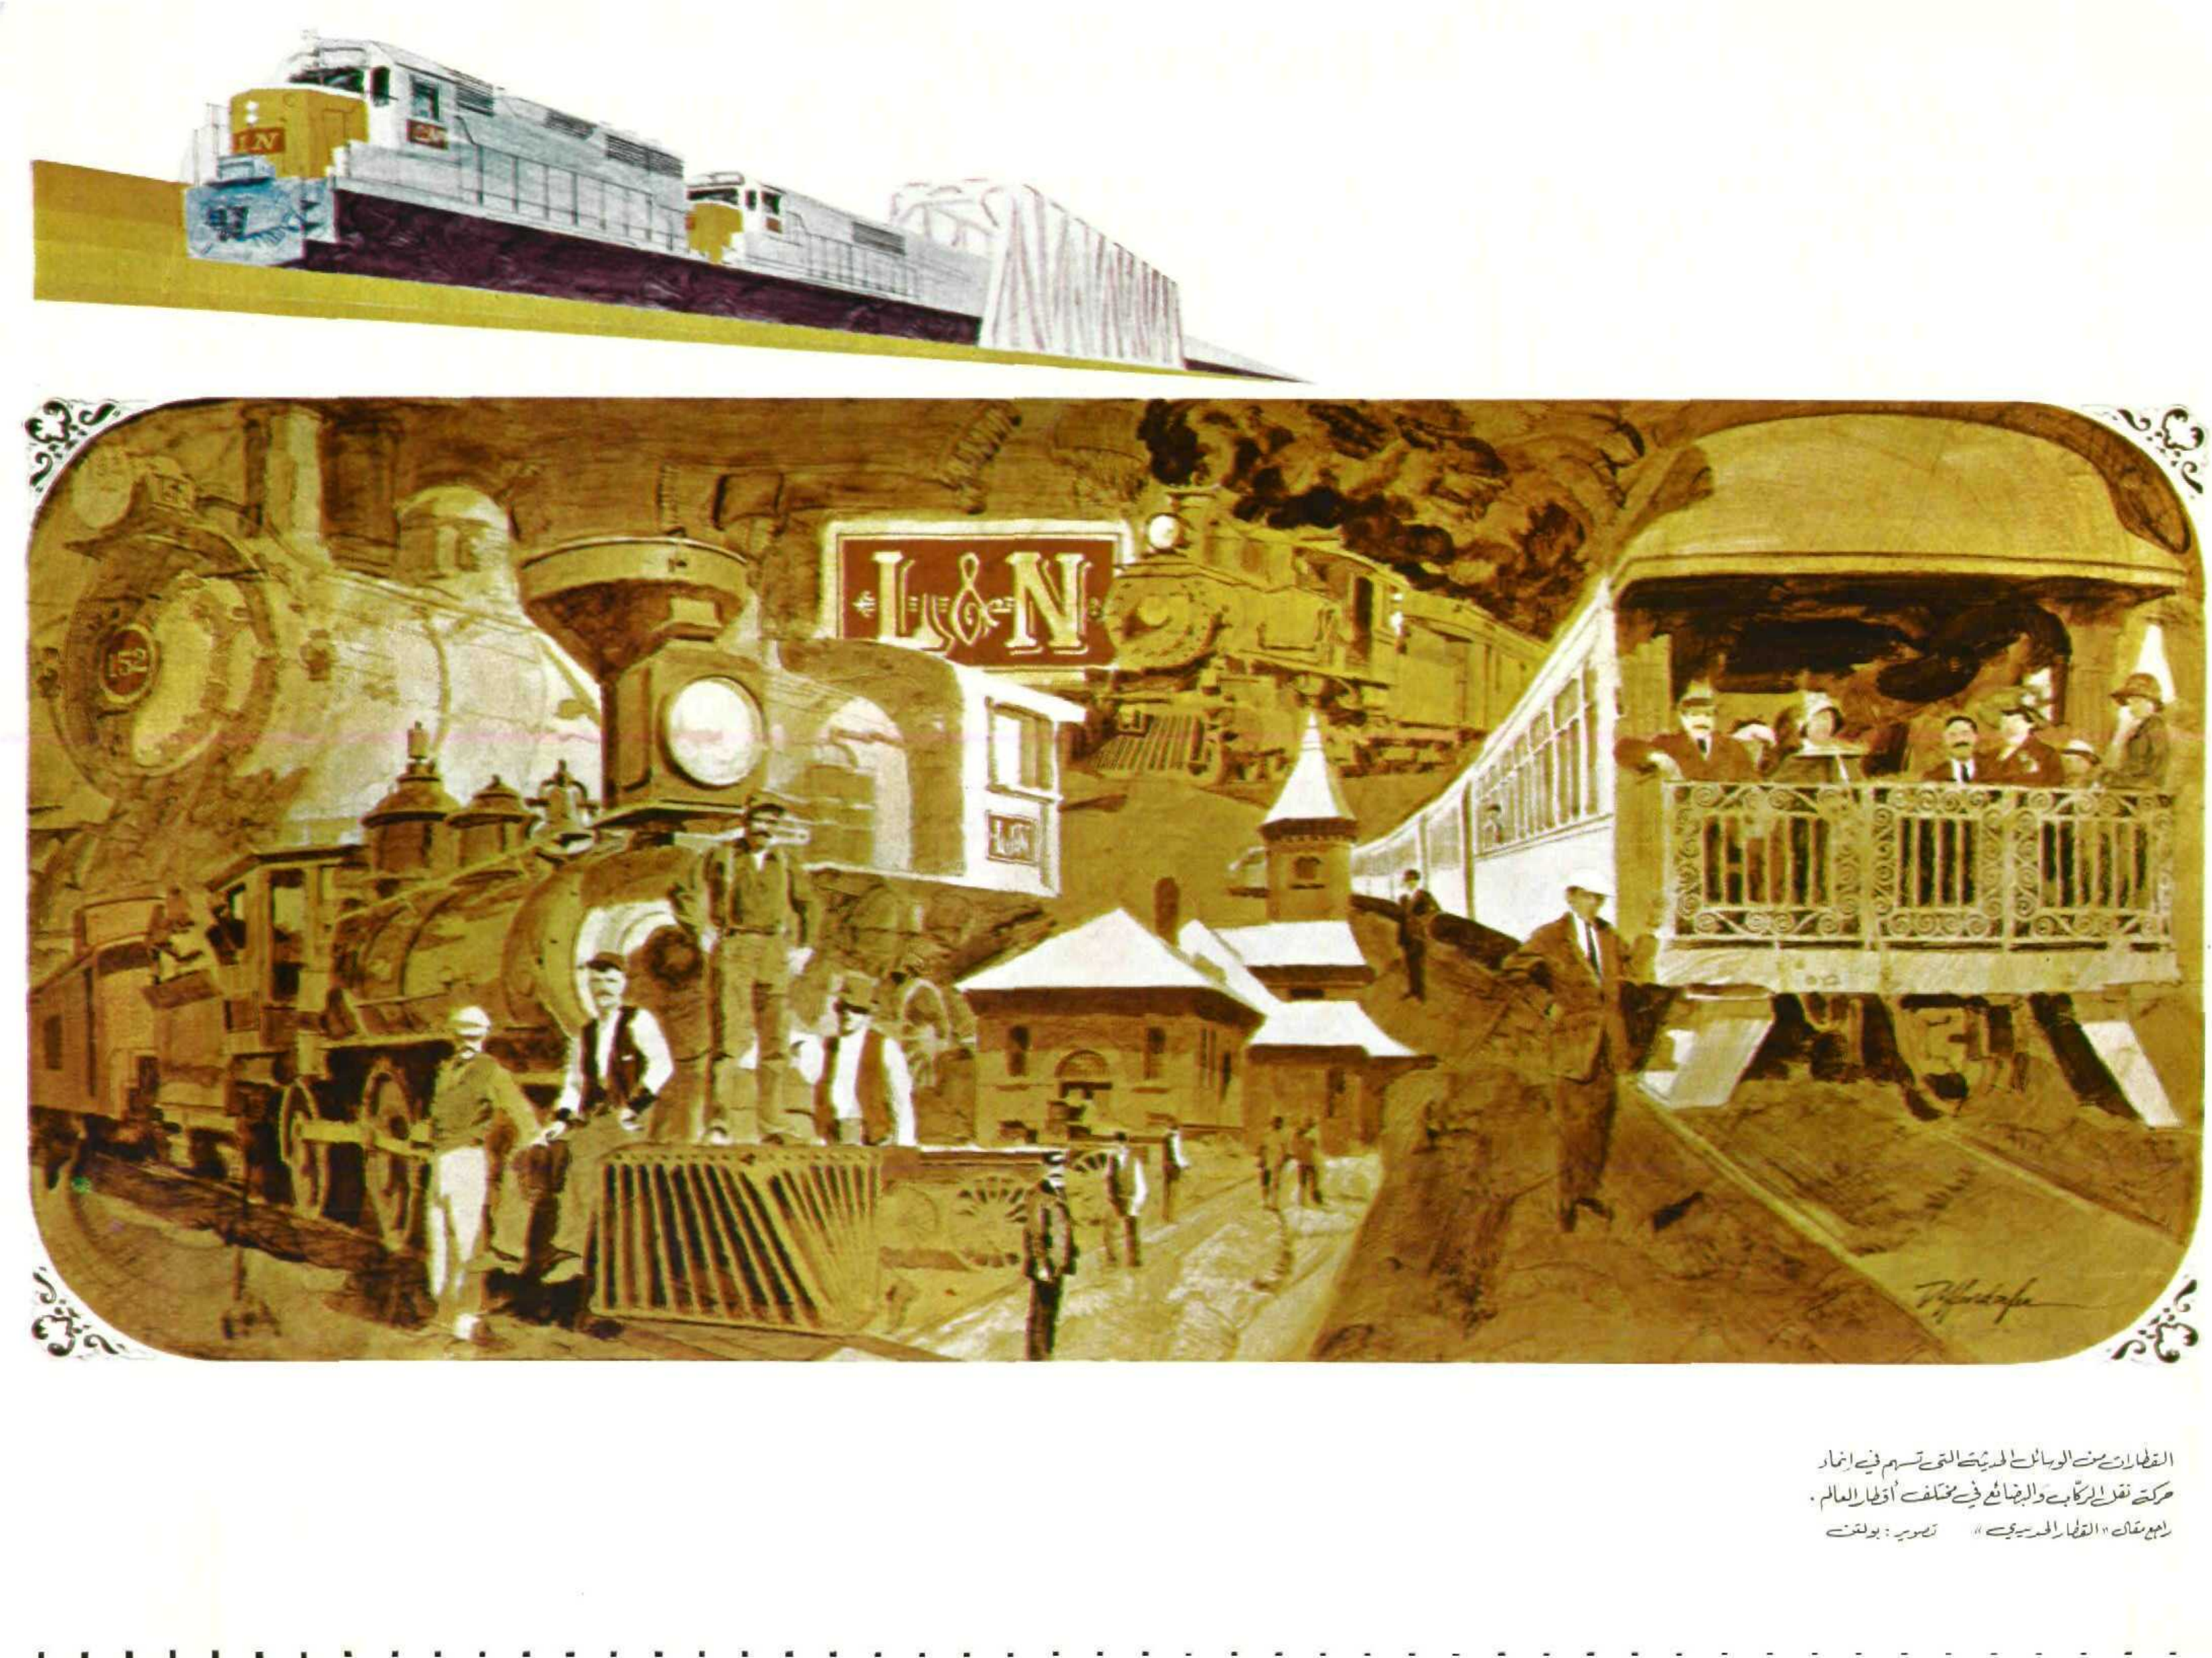 LN
L&N
L&N
152
L&N
القطارات من الوسائل الحديثة التي تسهم في إنماء
حركة نقل الركّاب والبضائع في مختلف أقطار العالم .
راجع مقال « القطار الحديدي » تصوير : بولتن